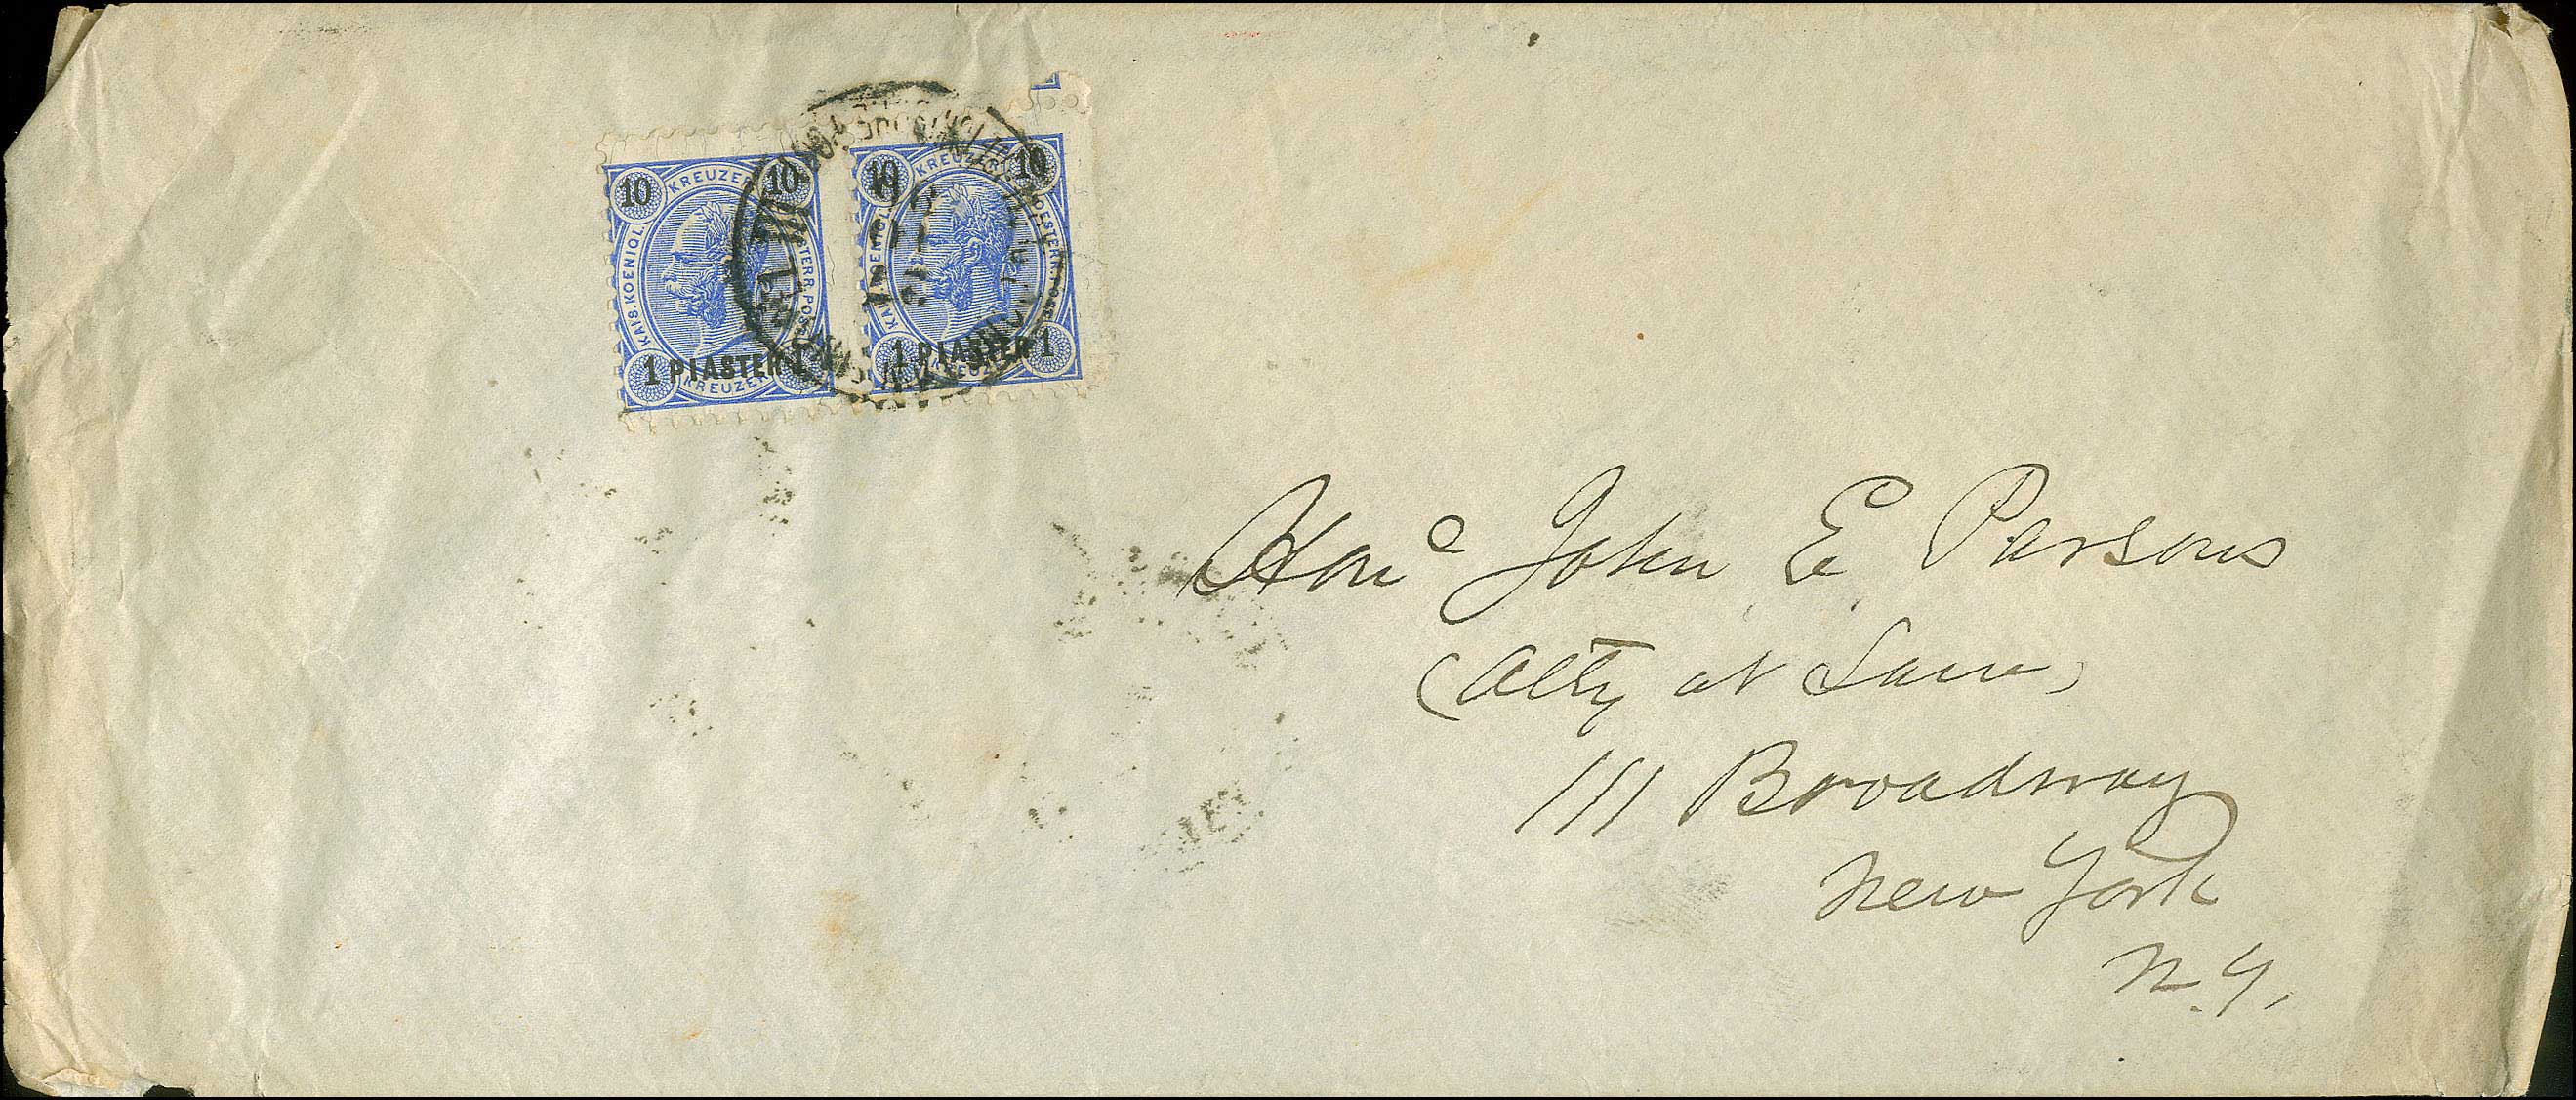 10 KREUZER 10
KAIS. KOENIGL. OESTERR. POST
1 PIASTER 1
KREUZER
10 KREUZER 10
KAIS. KOENIGL. OESTERR. POST
1 PIASTER 1
KREUZER
Hon.e John E Parsons
(Atty at Law,
111 Broadway
New York
N.Y.